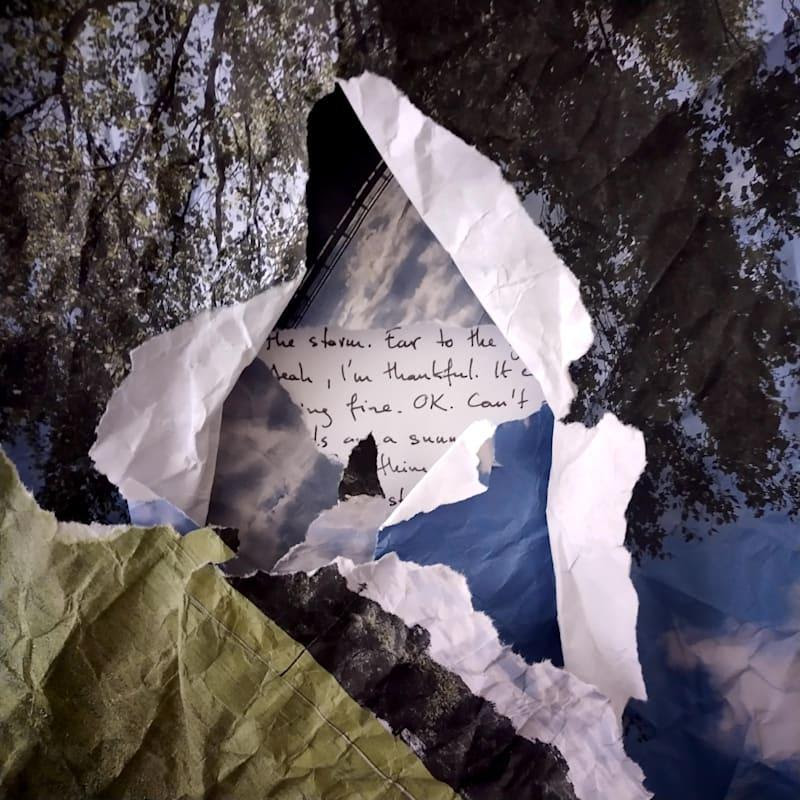 the storm. Ear to the
Yeah, I'm thankful. It
ing fire. OK. Can't
a sunn
thin
st